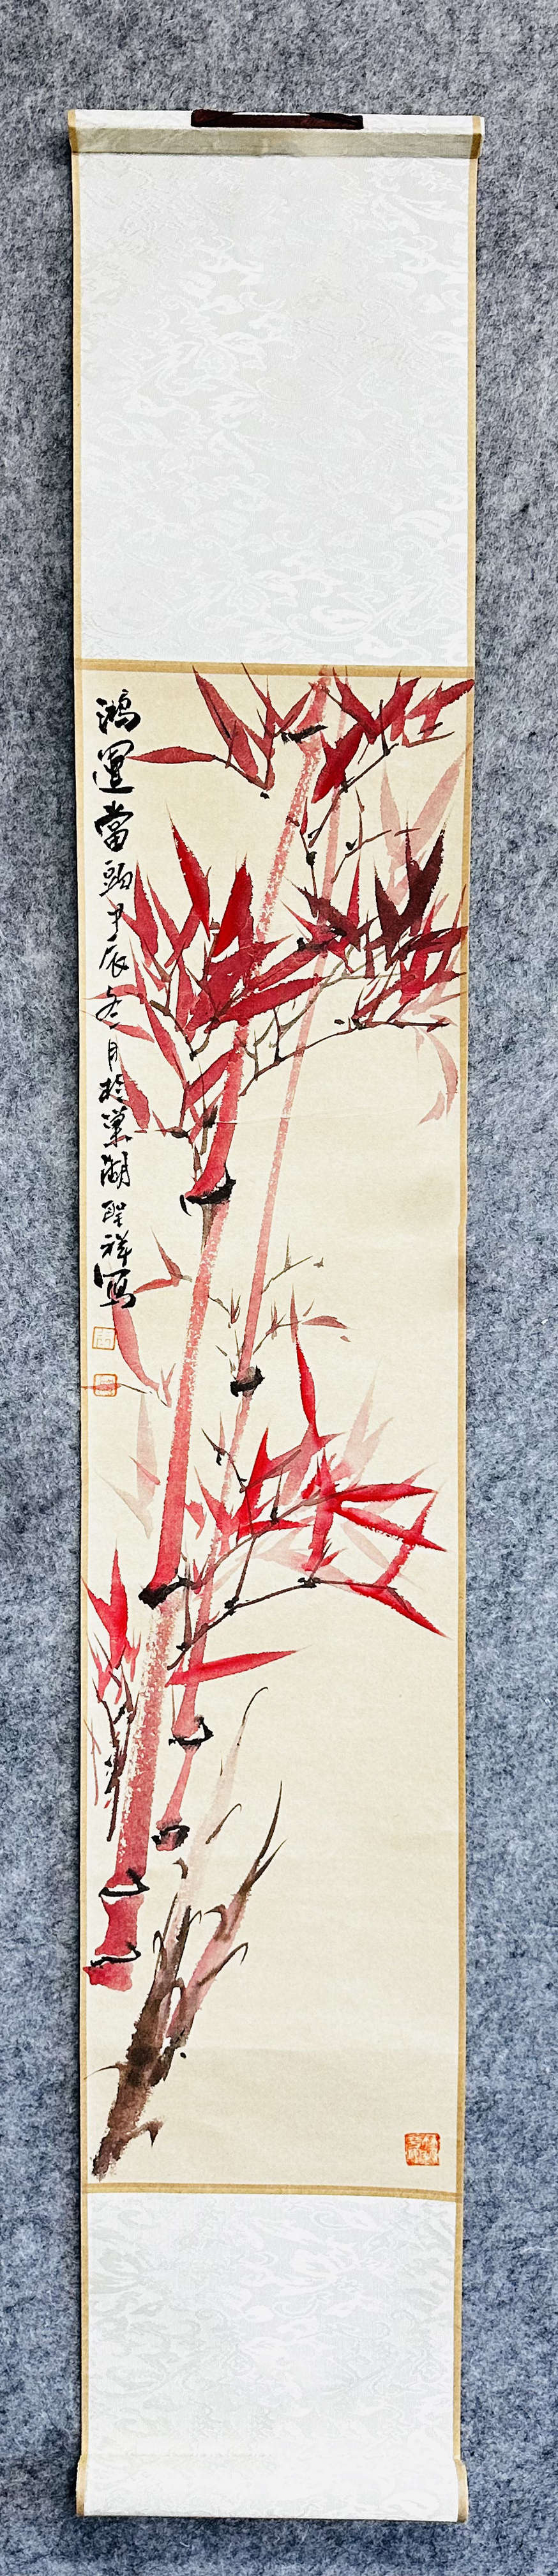 鴻運當頭甲辰冬月於巢湖聖祥寫